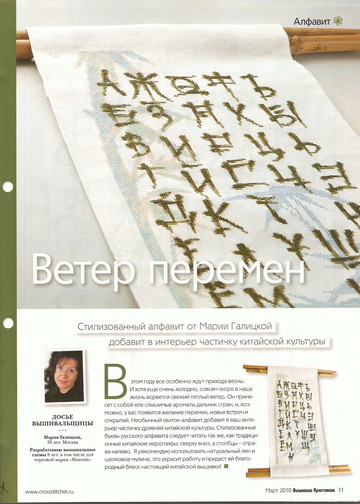 Алфавит
А Ж О Ф Ь
Ветер перемен
Стилизованный алфавит от Марии Галицкой
добавит в интерьер частичку китайской культуры
ДОСЬЕ
ВЫШИВАЛЬЩИЦЫ
Мария Галицкая,
30 лет, Москва
Разрабатываю вышивальные
схемы 8 лет, в том числе для
торговой марки
В этом году все особенно ждут прихода весны.
И хотя еще очень холодно, совсем скоро в нашу
жизнь ворвется свежий теплый ветер. Он прине-
сет с собой еле слышимые ароматы дальних стран, и, воз-
можно, у вас появится желание перемен, новых встреч и
открытий. Необычный свиток-алфавит добавит в ваш инте-
рьер частичку древней китайской культуры. Стилизованные
буквы русского алфавита следует читать так же, как традици-
онные китайские иероглифы: сверху вниз, а столбцы – спра-
ва налево. Я рекомендую использовать натуральный лен и
шелковое мулине, это украсит работу и придаст ей благо-
родный блеск настоящей китайской вышивки!
www.crossstitcher.ru
Март 2010 Вышиваю Крестиком 11